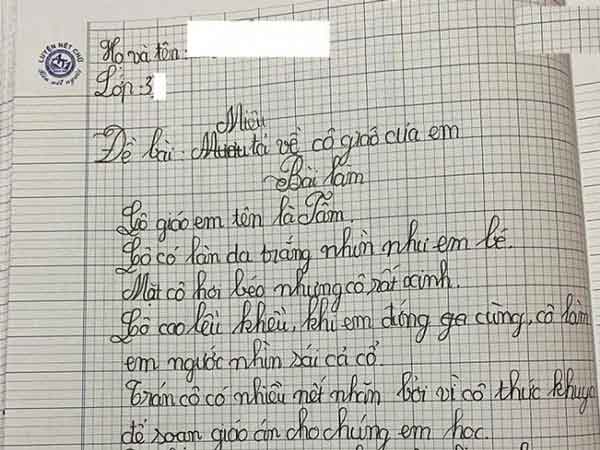 LUYỆN NÉT CHỮ
Rèn nết người
Họ và tên:
Lớp: 3
Miêu
Đề bài: Mưutả về cô giáo của em
Bài làm
Cô giáo em tên là Tâm.
Cô có làn da trắng nhìn như em bé.
Mặt cô hơi béo nhưng cô rất xinh.
Cô cao lêu khêu, khi em đứng ga cùng, cô làm
em ngước nhìn sái cả cổ.
Trán cô có nhiều nết nhăn bởi vì cô thức khuya
để soạn giáo án cho chúng em học.